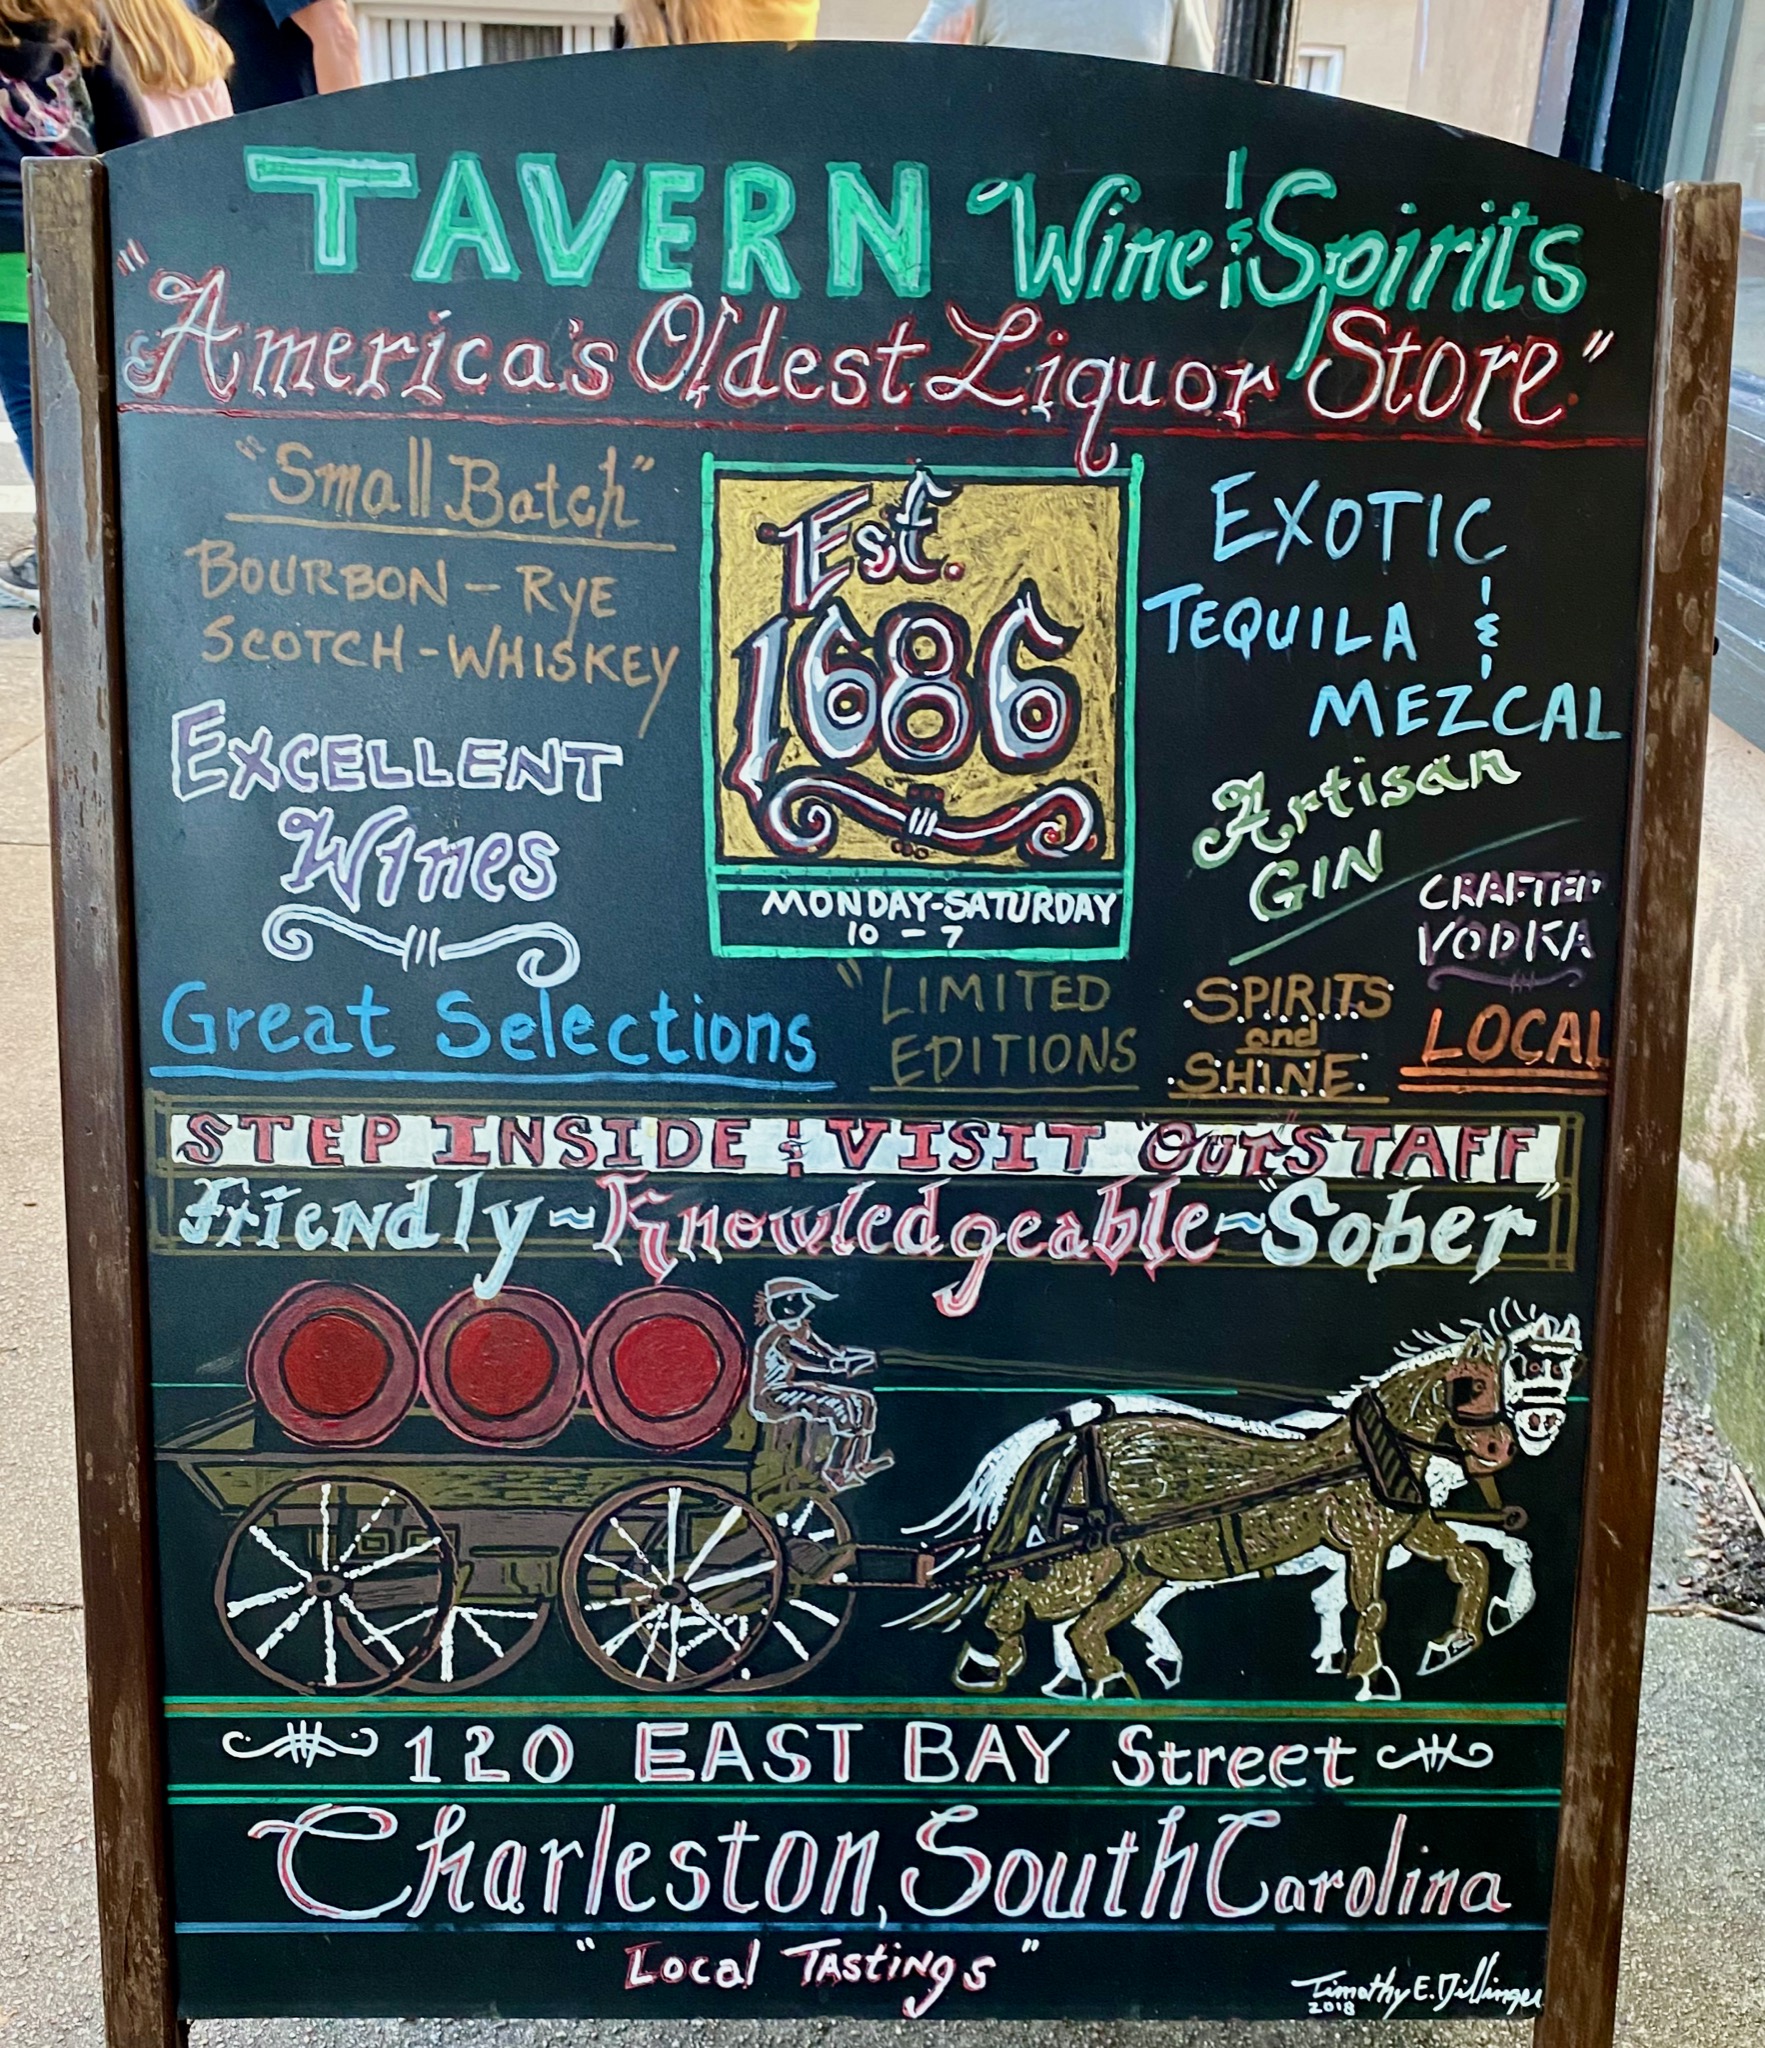 TAVERN Wine & Spirits
"America's Oldest Liquor Store"
"Small Batch"
BOURBON - RYE
SCOTCH - WHISKEY
EXCELLENT
Wines
Great Selections
Est.
1686
MONDAY-SATURDAY
10 - 7
EXOTIC
TEQUILA &
MEZCAL
Artisan
GIN
CRAFTED
VODKA
"LIMITED
EDITIONS
SPIRITS
and
SHINE
LOCAL
STEP INSIDE & VISIT "OUR" STAFF
Friendly ~ Knowledgeable ~ "Sober"
120 EAST BAY Street
Charleston, South Carolina
"Local Tastings"
Timothy E. Dillinger
2018